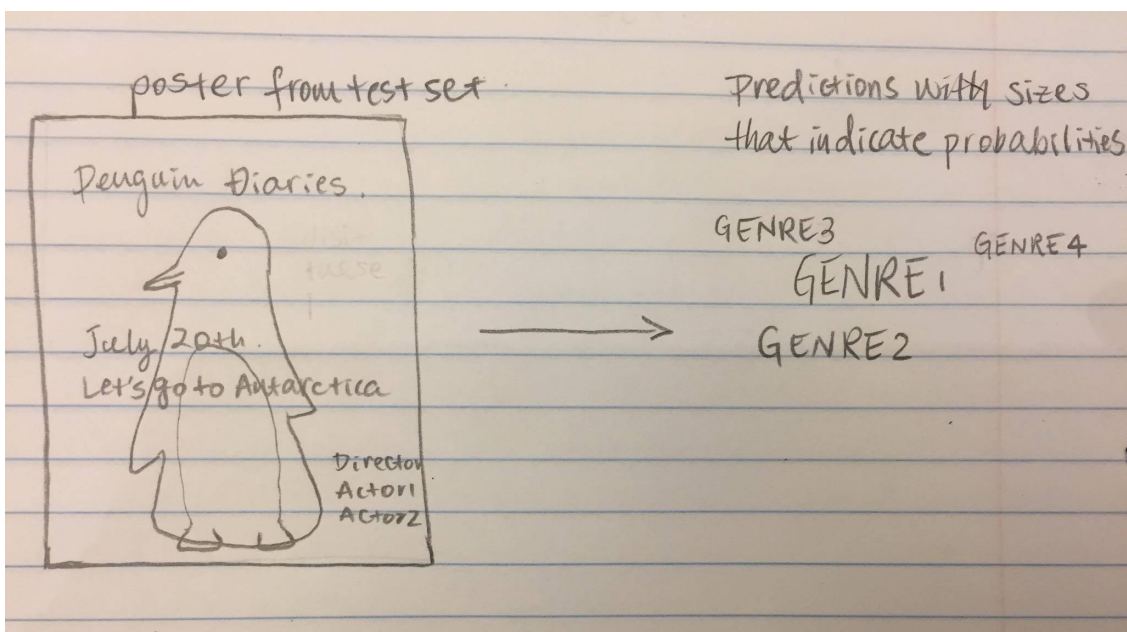 poster from test set.
Penguin Diaries.
July 20th.
Let's go to Antarctica
Director
Actor1
Actor2
Predictions with sizes
that indicate probabilities
GENRE3
GENRE4
GENRE1
GENRE2